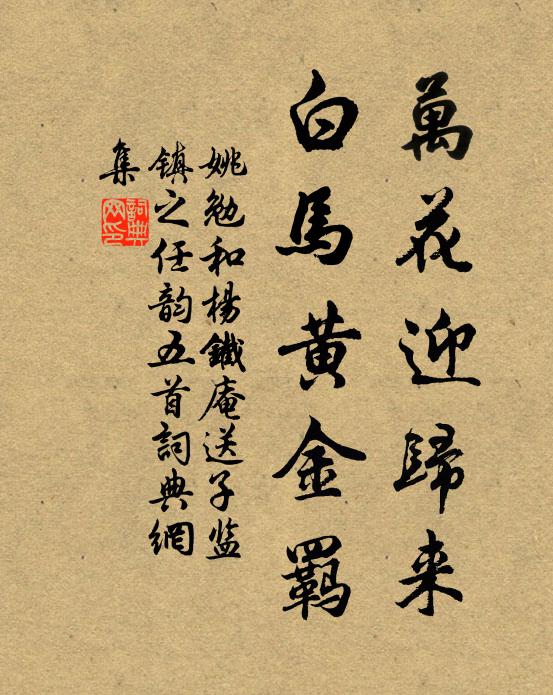 萬花迎歸来
白馬黄金羁
姚勉和楊鐵庵送子监
鎮之任韵五首詞典網
集
詞典網印